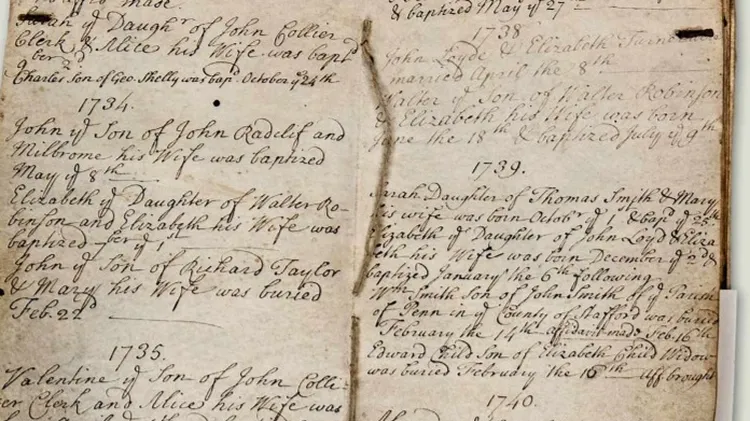 Sarah yͤ Daughʳ of John Collier
Clerk & Alice his Wife was bapᵈ
9ber 2ᵈ
Charles Son of Geo: Shelly was bapᵈ October yͤ 24th
1734.
John yͤ Son of John Radclif and
Milbrome his Wife was baptized
May yͤ 8th
Elizabeth yͤ Daughter of Walter Ro-
binson and Elizabeth his Wife was
baptized ber yͤ 1st
John yͤ Son of Richard Taylor
& Mary his Wife was buried
Feb. 22ᵈ
1735.
Valentine yͤ Son of John Colli-
er Clerk and Alice his Wife was
& baptized May yͤ 27th
1738
John Loyde & Elizabeth
married April the 8th
Walter yͤ Son of Walter Robinson
& Elizabeth his Wife was born
June the 18th & baptized July yͤ 9th
1739.
Sarah Daughter of Thomas Smyth & Mary
his wife was born Octobʳ yͤ 1 & bapᵈ yͤ 25th
Elizabeth yͤ Daughter of John Loyd & Eliza
beth his Wife was born December yͤ 2ᵈ &
baptized January the 6th following
Wᵐ Smith Son of John Smith of yͤ Parish
of Penn in yͤ County of Stafford was buried
February the 14th affidavit made Feb. 16th
Edward Child Son of Elizabeth Child Widow
was buried February the 16th Aff. brought
1740.